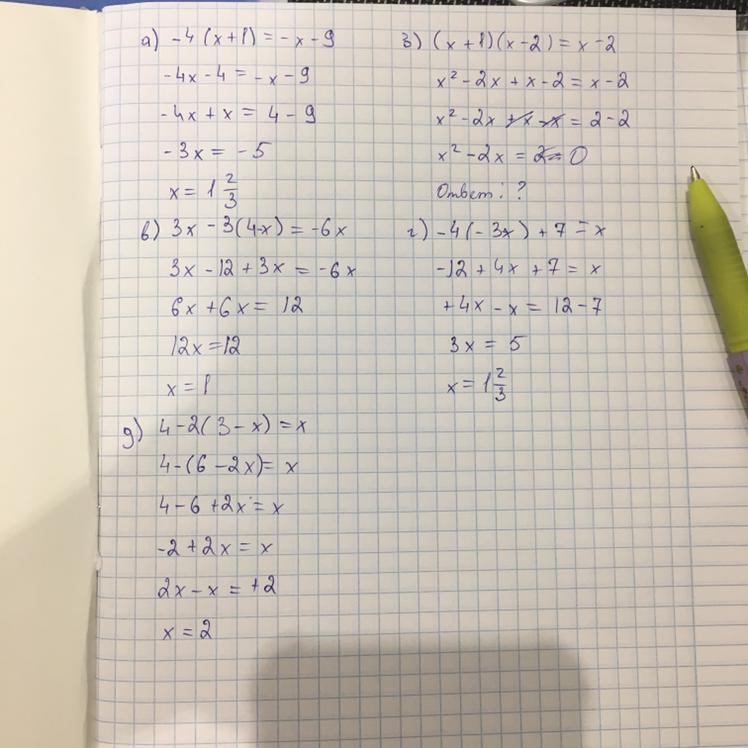 а) -4(x+1) = -x-9
-4x-4 = -x-9
-4x+x = 4-9
-3x = -5
x = 1 2/3
з) (x+1)(x-2) = x-2
x²-2x+x-2 = x-2
x²-2x+x-x = 2-2
x²-2x = 2= 0
Ответ: ?
в) 3x-3(4-x) = -6x
3x-12+3x = -6x
6x+6x = 12
12x=12
x=1
г) -4(-3x)+7=x
-12+4x+7=x
+4x-x = 12-7
3x = 5
x=1 2/3
д) 4-2(3-x)=x
4-(6-2x)=x
4-6+2x=x
-2+2x=x
2x-x=+2
x=2